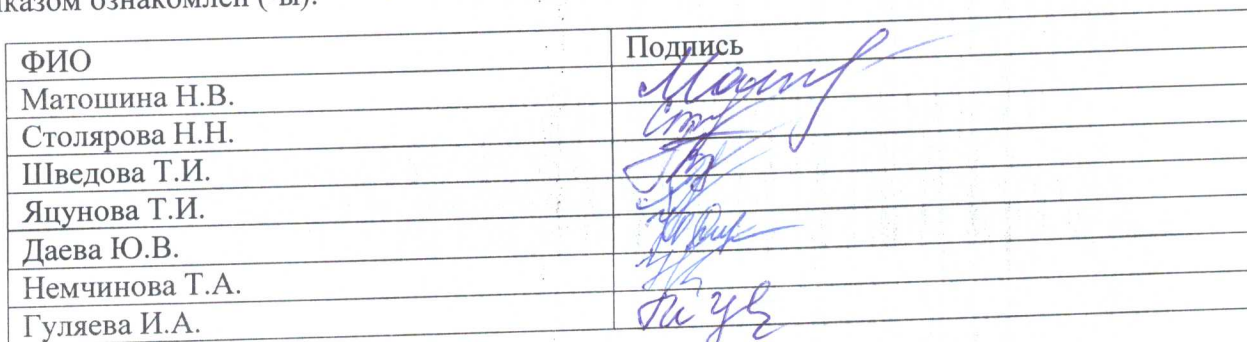 иказом ознакомлен (-ы):
ФИО Подпись
Матошина Н.В.
Столярова Н.Н.
Шведова Т.И.
Яцунова Т.И.
Даева Ю.В.
Немчинова Т.А.
Гуляева И.А.